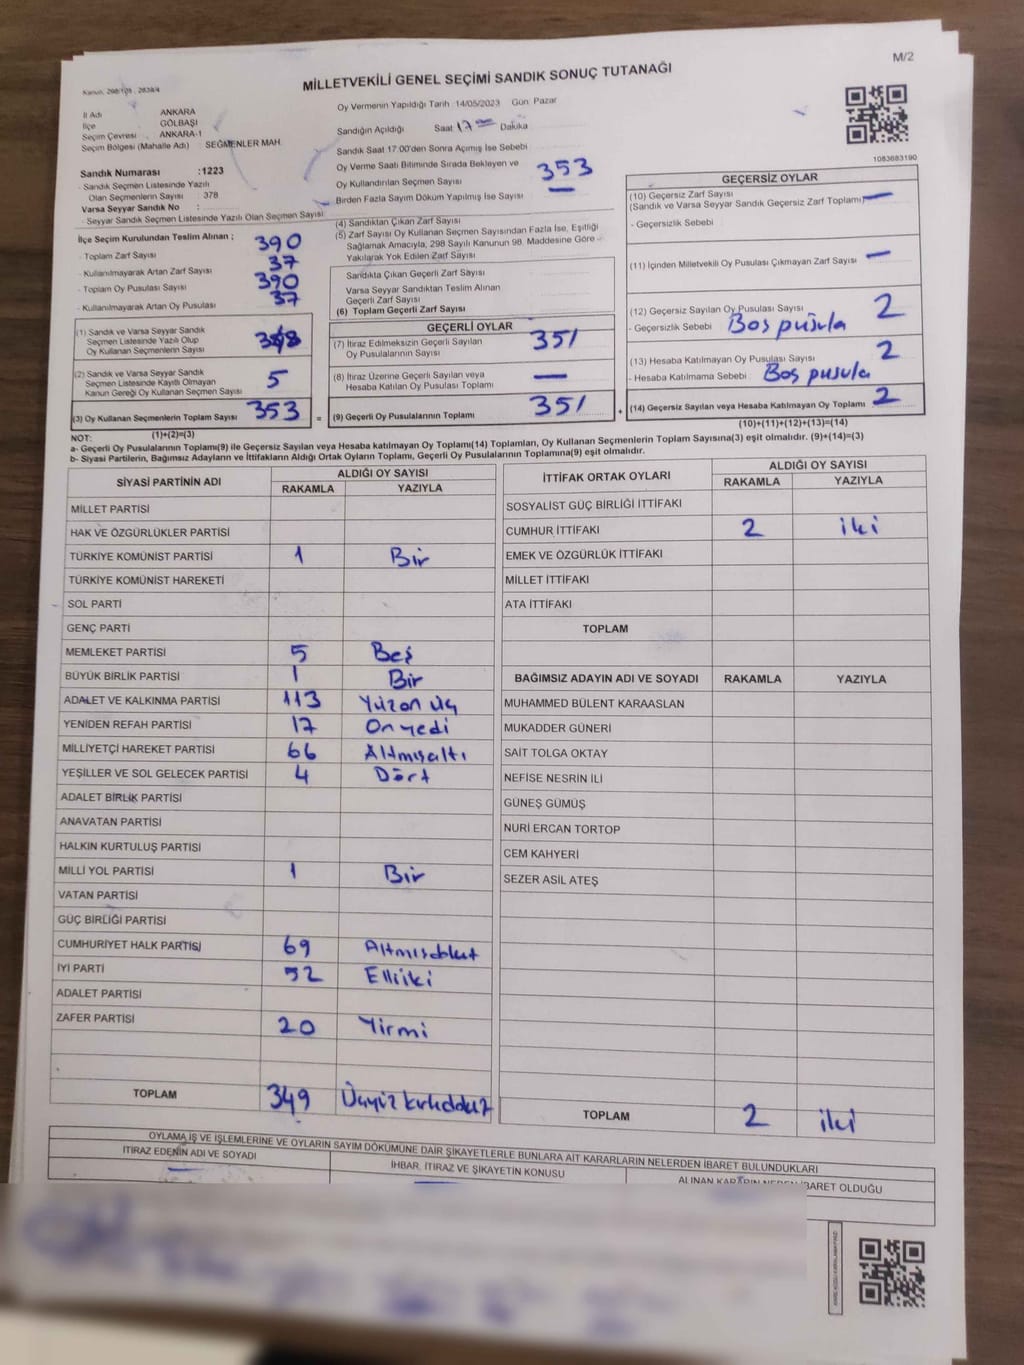 M/2
MİLLETVEKİLİ GENEL SEÇİMİ SANDIK SONUÇ TUTANAĞI
Kanun, 298/105 , 2839/4
İl Adı ANKARA
İlçe GÖLBAŞI
Seçim Çevresi : ANKARA-1
Seçim Bölgesi (Mahalle Adı) : SEĞMENLER MAH.
Sandık Numarası :1223
- Sandık Seçmen Listesinde Yazılı
Olan Seçmenlerin Sayısı : 378
Varsa Seyyar Sandık No :
- Seyyar Sandık Seçmen Listesinde Yazılı Olan Seçmen Sayısı
Oy Vermenin Yapıldığı Tarih 14/05/2023 Gün Pazar
Sandığın Açıldığı Saat 17 00 Dakika
Sandık Saat 17.00'den Sonra Açımış İse Sebebi
Oy Verme Saati Bitiminde Sırada Bekleyen ve
Oy Kullandırılan Seçmen Sayısı 353
Birden Fazla Sayım Döküm Yapılmış İse Sayısı —
1083683190
İlçe Seçim Kurulundan Teslim Alınan ;
- Toplam Zarf Sayısı 390
- Kullanılmayarak Artan Zarf Sayısı 37
- Toplam Oy Pusulası Sayısı 390
- Kullanılmayarak Artan Oy Pusulası 37
(1) Sandık ve Varsa Seyyar Sandık
Seçmen Listesinde Yazılı Olup
Oy Kullanan Seçmenlerin Sayısı 348
(2) Sandık ve Varsa Seyyar Sandık
Seçmen Listesinde Kayıtlı Olmayan
Kanun Gereği Oy Kullanan Seçmen Sayısı 5
(3) Oy Kullanan Seçmenlerin Toplam Sayısı 353 =
(1)+(2)=(3)
(4) Sandıktan Çıkan Zarf Sayısı
(5) Zarf Sayısı Oy Kullanan Seçmen Sayısından Fazla İse, Eşitliği
Sağlamak Amacıyla, 298 Sayılı Kanunun 98. Maddesine Göre –
Yakılarak Yok Edilen Zarf Sayısı
Sandıkta Çıkan Geçerli Zarf Sayısı
Varsa Seyyar Sandıktan Teslim Alınan
Geçerli Zarf Sayısı
(6) Toplam Geçerli Zarf Sayısı
GEÇERLİ OYLAR
(7) İtiraz Edilmeksizin Geçerli Sayılan
Oy Pusulalarının Sayısı 351
(8) İtiraz Üzerine Geçerli Sayılan veya
Hesaba Katılan Oy Pusulası Toplamı —
(9) Geçerli Oy Pusulalarının Toplamı 351 +
GEÇERSİZ OYLAR
(10) Geçersiz Zarf Sayısı
(Sandık ve Varsa Seyyar Sandık Geçersiz Zarf Toplamı) —
- Geçersizlik Sebebi
(11) İçinden Milletvekili Oy Pusulası Çıkmayan Zarf Sayısı —
(12) Geçersiz Sayılan Oy Pusulası Sayısı 2
- Geçersizlik Sebebi Boş pusula
(13) Hesaba Katılmayan Oy Pusulası Sayısı 2
- Hesaba Katılmama Sebebi Boş pusula
(14) Geçersiz Sayılan veya Hesaba Katılmayan Oy Toplamı 2
(10)+(11)+(12)+(13)=(14)
NOT:
a- Geçerli Oy Pusulalarının Toplamı(9) ile Geçersiz Sayılan veya Hesaba katılmayan Oy Toplamı(14) Toplamları, Oy Kullanan Seçmenlerin Toplam Sayısına(3) eşit olmalıdır. (9)+(14)=(3)
b- Siyasi Partilerin, Bağımsız Adayların ve İttifakların Aldığı Ortak Oyların Toplamı, Geçerli Oy Pusulalarının Toplamına(9) eşit olmalıdır.
SİYASİ PARTİNİN ADI ALDIĞI OY SAYISI
RAKAMLA YAZIYLA
MİLLET PARTİSİ
HAK VE ÖZGÜRLÜKLER PARTİSİ
TÜRKİYE KOMÜNİST PARTİSİ 1 Bir
TÜRKİYE KOMÜNİST HAREKETİ
SOL PARTİ
GENÇ PARTİ
MEMLEKET PARTİSİ 5 Beş
BÜYÜK BİRLİK PARTİSİ 1 Bir
ADALET VE KALKINMA PARTİSİ 113 Yüzon üç
YENİDEN REFAH PARTİSİ 17 On yedi
MİLLİYETÇİ HAREKET PARTİSİ 66 Altmışaltı
YEŞİLLER VE SOL GELECEK PARTİSİ 4 Dört
ADALET BİRLİK PARTİSİ
ANAVATAN PARTİSİ
HALKIN KURTULUŞ PARTİSİ
MİLLİ YOL PARTİSİ 1 Bir
VATAN PARTİSİ
GÜÇ BİRLİĞİ PARTİSİ
CUMHURİYET HALK PARTİSİ 69 Altmışdokuz
İYİ PARTİ 52 Elliiki
ADALET PARTİSİ
ZAFER PARTİSİ 20 Yirmi
TOPLAM 349 Üçyüz kırkdokuz
İTTİFAK ORTAK OYLARI ALDIĞI OY SAYISI
RAKAMLA YAZIYLA
SOSYALİST GÜÇ BİRLİĞİ İTTİFAKI
CUMHUR İTTİFAKI 2 iki
EMEK VE ÖZGÜRLÜK İTTİFAKI
MİLLET İTTİFAKI
ATA İTTİFAKI
TOPLAM
BAĞIMSIZ ADAYIN ADI VE SOYADI RAKAMLA YAZIYLA
MUHAMMED BÜLENT KARAASLAN
MUKADDER GÜNERİ
SAİT TOLGA OKTAY
NEFİSE NESRİN İLİ
GÜNEŞ GÜMÜŞ
NURİ ERCAN TORTOP
CEM KAHYERİ
SEZER ASİL ATEŞ
TOPLAM 2 iki
OYLAMA İŞ VE İŞLEMLERİNE VE OYLARIN SAYIM DÖKÜMÜNE DAİR ŞİKAYETLERLE BUNLARA AİT KARARLARIN NELERDEN İBARET BULUNDUKLARI
İTİRAZ EDENİN ADI VE SOYADI İHBAR, İTİRAZ VE ŞİKAYETİN KONUSU ALINAN KARARIN NEDEN İBARET OLDUĞU